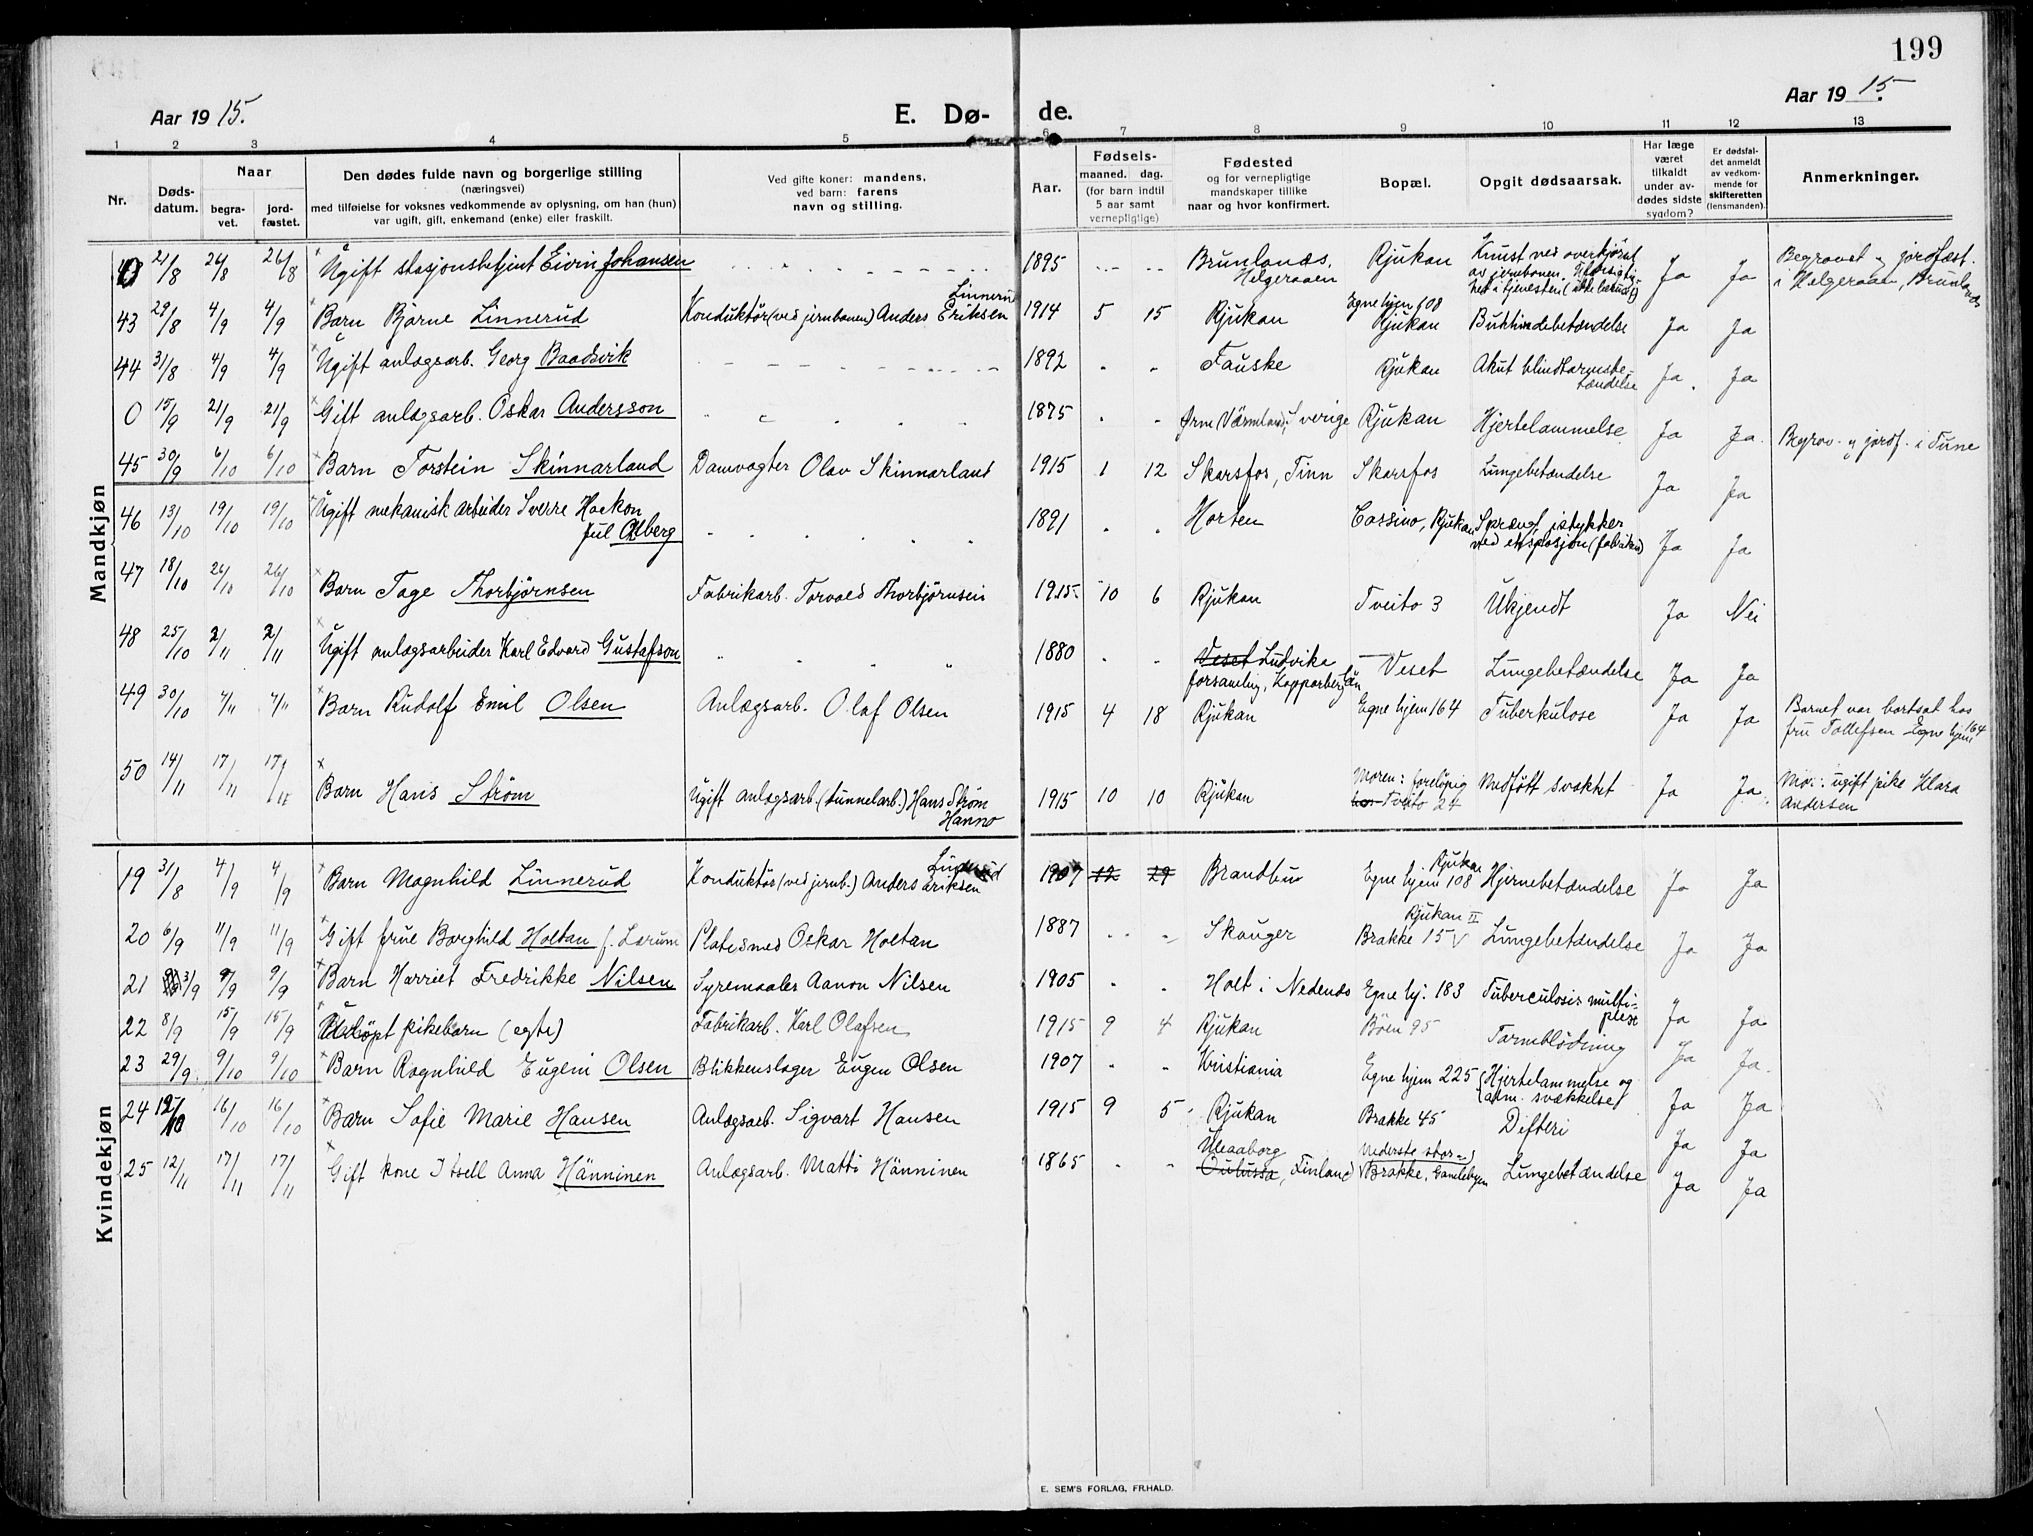 199
Aar 1915.
E. Dø- de.
Aar 1915.
1 2 3 4 5 6 7 8 9 10 11 12 13
Nr.
Døds-
datum.
Naar
begra-
vet.
jord-
fæstet.
Den dødes fulde navn og borgerlige stilling
(næringsvei)
med tilføielse for voksnes vedkommende av oplysning, om han (hun)
var ugift, gift, enkemand (enke) eller fraskilt.
Ved gifte koner: mandens,
ved barn: farens
navn og stilling.
Aar.
Fødsels-
maaned. dag.
(for barn indtil
5 aar samt
vernepligtige)
Fødested
og for vernepligtige
mandskaper tillike
naar og hvor konfirmert.
Bopæl.
Opgit dødsaarsak.
Har læge
været
tilkaldt
under av-
dødes sidste
sygdom?
Er dødsfal-
det anmeldt
av vedkom-
mende for
skifteretten
(lensmanden).
Anmerkninger.
Mandkjøn
0 21/8 26/8 26/8 Ugift stasjonsbetjent Eivin Johansen 1895 Brunlanæs, Helgeraaen Rjukan Knust ved overkjørsel av jernbanen. Uforsigtighet i tjenesten (ikke beruset) Ja Ja Begravet og jordfæst. i Helgeraaen, Brunlanæs
43 29/8 4/9 4/9 Barn Bjarne Linnerud Konduktör (ved jernbanen) Anders Eriksen Linnerud 1914 5 15 Rjukan Egne hjem 108 Rjukan Bukhindebetændelse Ja Ja
44 31/8 4/9 4/9 Ugift anlægsarb. Georg Baadsvik 1892 Fauske Rjukan Akut blindtarmsbetændelse Ja Ja
0 15/9 21/9 21/9 Gift anlægsarb. Oskar Andersson 1875 Värmland, Sverige Rjukan Hjertelammelse Ja Ja Begrav. og jordf. i Tune
45 30/9 6/10 6/10 Barn Torstein Skinnarland Damvogter Olav Skinnarland 1915 1 12 Skarsfos, Tinn Skarsfos Lungebetændelse Ja Ja
46 13/10 19/10 19/10 Ugift mekanisk arbeider Sverre Haakon Jul Alberg 1891 Horten Cassino, Rjukan Sprængt i stykker ved eksplosjon (fabriken) Ja Ja
47 18/10 26/10 26/10 Barn Tage Thorbjørnsen Fabrikarb. Torvald Thorbjørnsen 1915 10 6 Rjukan Tveito 3 Ukjendt Ja Nei
48 25/10 2/11 2/11 Ugift anlægsarbeider Karl Edvard Gustafson 1880 Veset Ludvika forsamling, Kopparbergs län Veset Lungebetændelse Ja Ja
49 30/10 4/11 4/11 Barn Rudolf Emil Olsen Anlægsarb. Olaf Olsen 1915 4 18 Rjukan Egne hjem 164 Tuberkulose Ja Ja Barnet var bortsat hos fru Tollefsen Egne hjem 164
50 14/11 17/11 17/11 Barn Hans Strøm Ugift anlægsarb. (tunnelarb.) Hans Strøm Hanno 1915 10 10 Rjukan Moren: foreløpig Tveito 24 Medføtt svakhet Ja Ja Mor: ugift pike Klara Andersen
Kvindekjøn
19 31/8 4/9 4/9 Barn Magnhild Linnerud Konduktør (ved jernb.) Anders Eriksen Linnerud 1907 12 29 Brandbu Egne hjem 108 Rjukan Hjernebetændelse Ja Ja
20 6/9 11/9 11/9 Gift frue Borghild Holtan f. Larum Platesmed Oskar Holtan 1887 Skauger Rjukan II Brakke 15 V Lungebetændelse Ja Ja
21 3/9 9/9 9/9 Barn Harriet Fredrikke Nilsen Syremaaler Aanon Nilsen 1905 Holt i Nedenes Egne hj. 183 Tuberculosis multiplese Ja Ja
22 8/9 15/9 15/9 Udøpt pikebarn (egte) Fabrikarb. Karl Olafsen 1915 9 4 Rjukan Bøen 95 Tarmblødning Ja Ja
23 29/9 9/10 9/10 Barn Ragnhild Eugeni Olsen Blikkenslager Eugen Olsen 1907 Kristiania Egne hjem 225 Hjertelammelse og alm. svækkelse Ja Ja
24 12/10 16/10 16/10 Barn Sofie Marie Hansen Anlægsarb. Sigvart Hansen 1915 9 5 Rjukan Brakke 45 Difteri Ja Ja
25 12/11 17/11 17/11 Gift kone Itsell Anna Hänninen Anlægsarb. Matti Hänninen 1865 Uleaaborg Oulussa, Finland Nederste stor- Brakke, Gamlebyen Lungebetændelse Ja Ja
E. SEM'S FORLAG, FR.HALD.